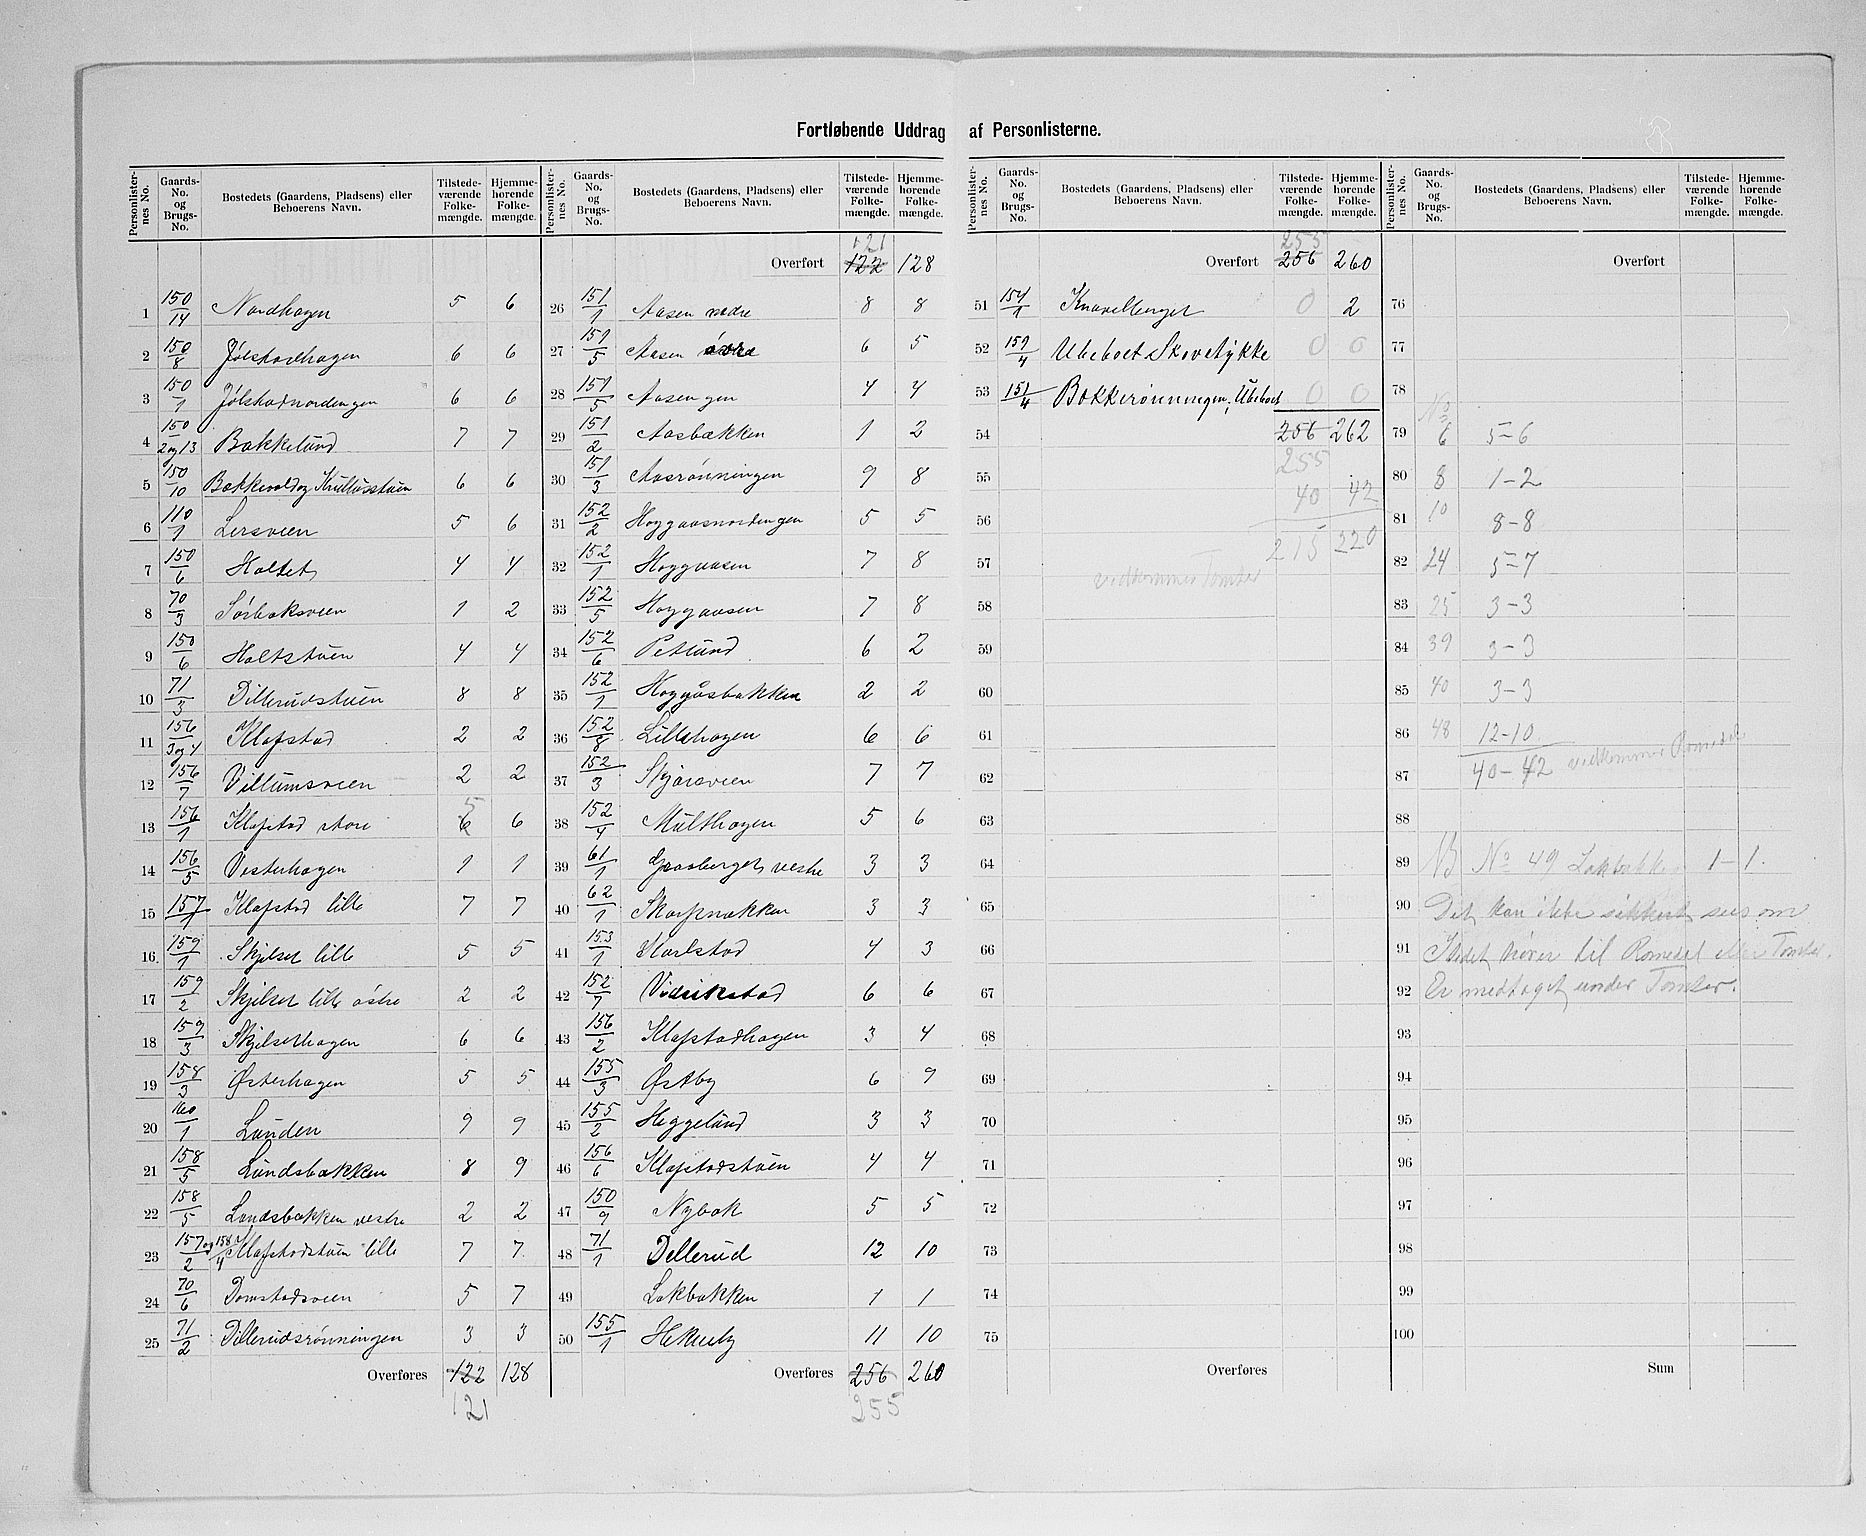 Fortløbende Uddrag af Personlisterne.
Personlisternes No. Gaards-No. og Brugs-No. Bostedets (Gaardens, Pladsens) eller Beboerens Navn. Tilstedeværende Folkemængde. Hjemmehørende Folkemængde.
1 150/14 Nordhagen 5 6
2 150/8 Jølstadhagen 6 6
3 150/1 Jølstadnordengen 6 6
4 150/2og13 Bakkelund 7 7
5 150/10 Bakkevold og Knutlusstuen 6 6
6 110/1 Lersveen 5 6
7 150/6 Holtet 4 4
8 70/3 Sørbaksveen 1 2
9 150/6 Holtstuen 4 4
10 71/3 Dillerudstuen 8 8
11 156/3og4 Klafstad 2 2
12 156/7 Villumsveen 2 2
13 156/1 Klafstad store 6 5 6
14 156/5 Vesterhagen 1 1
15 157/1 Klafstad lille 7 7
16 159/1 Skjelset lille 5 5
17 159/2 Skjelset lille østre 2 2
18 159/3 Skjelsethagen 6 6
19 158/3 Østerhagen 5 5
20 160/1 Lunden 9 9
21 158/5 Lundsbakken 8 9
22 158/5 Lundsbakken vestre 2 2
23 157/2 og 158/4 Klafstadstuen lille 7 7
24 70/6 Domstadsveen 5 7
25 71/2 Dillerudsrønningen 3 3
Overføres 122 128
121
Personlisternes No. Gaards-No. og Brugs-No. Bostedets (Gaardens, Pladsens) eller Beboerens Navn. Tilstedeværende Folkemængde. Hjemmehørende Folkemængde.
121
Overført 122 128
26 151/1 Aasen nedre 8 8
27 151/5 Aasen øvre 6 5
28 151/5 Aasengen 4 4
29 151/2 Aasbækken 1 2
30 151/3 Aasrønningen 9 8
31 152/2 Hoggaasnordengen 5 5
32 152/1 Hoggaasen 7 8
33 152/5 Hoggaasen 7 8
34 152/6 Petlund 6 2
35 152/1 Hoggåsbakken 2 2
36 152/8 Lillehagen 6 6
37 152/3 Skjæraveen 7 7
38 152/4 Multhagen 5 6
39 61/1 Graaberget vestre 3 3
40 62/1 Skarpnakken 3 3
41 153/1 Karlstad 4 3
42 152/7 Vidrikstad 6 6
43 156/2 Klafstadhagen 3 4
44 155/3 Østby 6 9
45 155/2 Heggelund 3 3
46 156/6 Klafstadstuen 4 4
47 150/9 Nybak 5 5
48 71/1 Dellerud 12 10
49 Lakbakken 1 1
50 155/1 Hekneby 11 10
Overføres 256 260
255
Personlisternes No. Gaards-No. og Brugs-No. Bostedets (Gaardens, Pladsens) eller Beboerens Navn. Tilstedeværende Folkemængde. Hjemmehørende Folkemængde.
255
Overført 256 260
51 154/1 Knavelberget 0 2
52 159/4 Ubeboet Skovstykke 0 0
53 151/4 Bakkerønningen, Ubeboet 0 0
54 256 262
55 255
40 42
56
215 220
57
vedkommer Tomter
58
59
60
61
62
63
64
65
66
67
68
69
70
71
72
73
74
75
Overføres
Personlisternes No. Gaards-No. og Brugs-No. Bostedets (Gaardens, Pladsens) eller Beboerens Navn. Tilstedeværende Folkemængde. Hjemmehørende Folkemængde.
Overført
76
77
78
No
79 6 5-6
80 8 1-2
81 10 8-8
82 24 5-7
83 25 3-3
84 39 3-3
85 40 3-3
86 48 12-10
87 40-42 vedkommer Romedal
88
89 NB No 49 Lakbakken 1-1.
90 Det kan ikke sikkert sees om
91 Stedet hører til Romedal eller Tomter.
92 Er medtaget under Tomter.
93
94
95
96
97
98
99
100
Sum